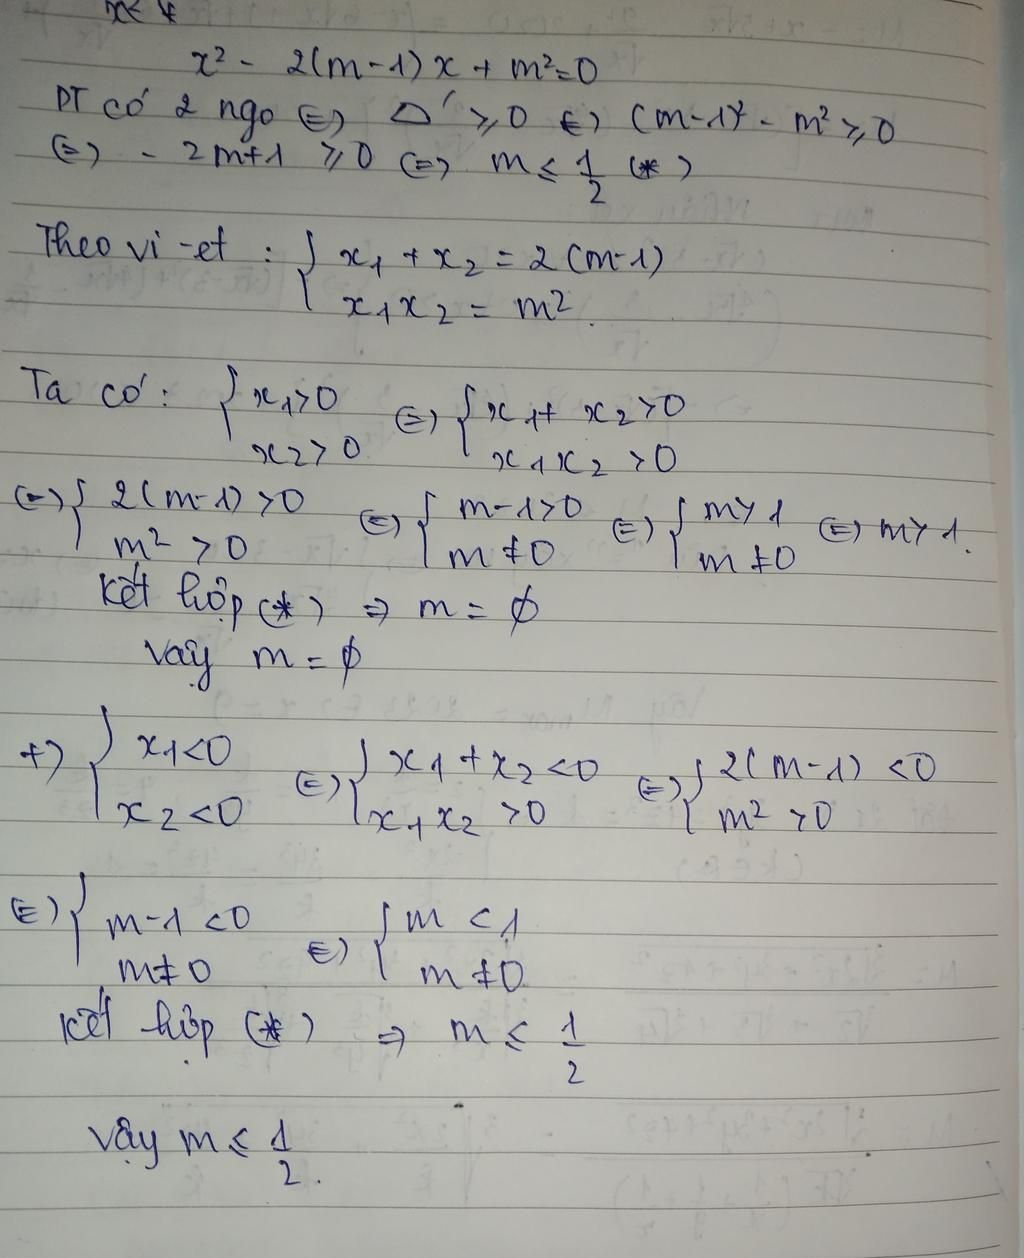 x² - 2(m-1)x + m² = 0
PT có 2 ngo ⇔ Δ' ≥ 0 ⇔ (m-1)² - m² ≥ 0
⇔ - 2m+1 ≥ 0 ⇔ m ≤ 1/2 (*)
Theo vi-et : { x₁ + x₂ = 2(m-1)
x₁x₂ = m².
Ta có : { x₁>0 ⇔ { x₁+ x₂ >0
x₂>0 x₁x₂ >0
⇔ { 2(m-1) >0 ⇔ { m-1>0 ⇔ { m>1 ⇔ m>1.
m² >0 m≠0 m≠0
Kết hợp (*) ⇒ m = ∅
Vậy m = ∅
+) { x₁<0 ⇔ { x₁ + x₂ <0 ⇔ { 2(m-1) <0
x₂<0 x₁x₂ >0 m² >0
⇔ { m-1 <0 ⇔ { m <1
m≠0 m≠0
Kết hợp (*) ⇒ m ≤ 1/2
Vậy m ≤ 1/2.